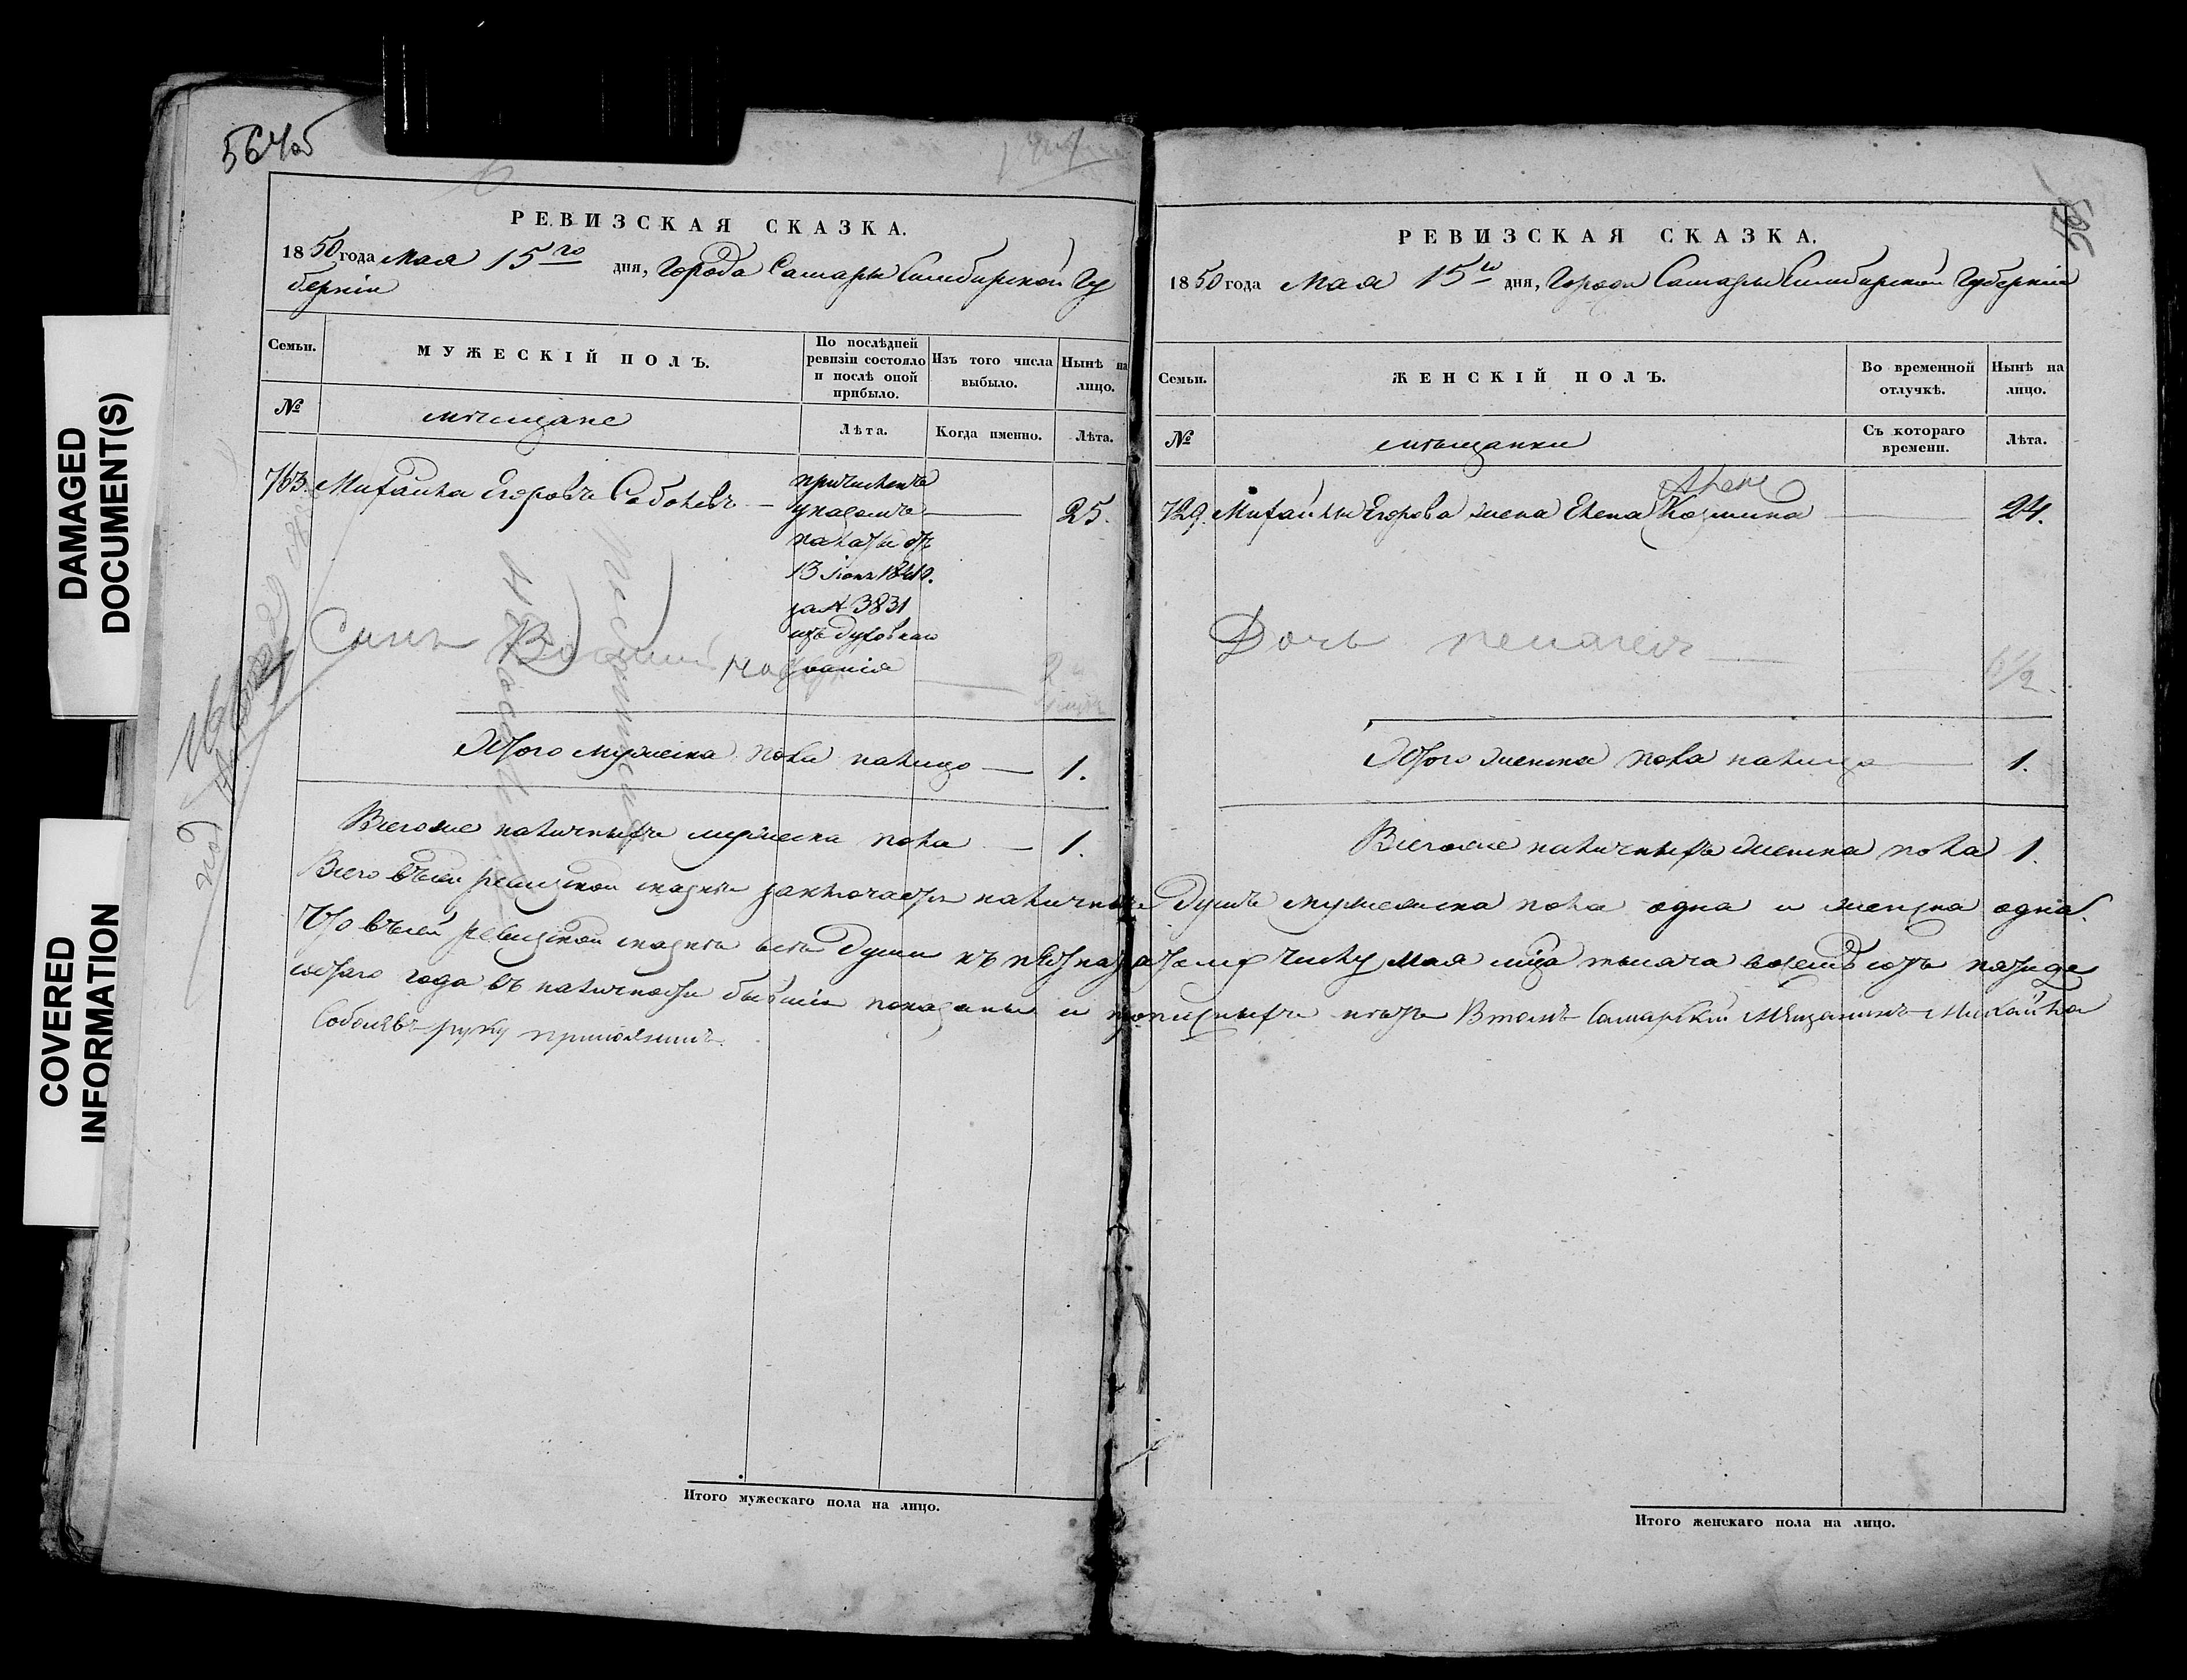 564об
РЕВИЗСКАЯ СКАЗКА.
1850 года Мая 15го дня, Города Самары Симбирской Гу
берніи
Семьи.
МУЖЕСКІЙ ПОЛЪ.
По послѣдней
ревизіи состояло
и послѣ оной
прибыло.
Изъ того числа
выбыло.
Нынѣ на
лицо.
№
мѣщане
Лѣта.
Когда именно.
Лѣта.
763. Михайла Егоровъ Соболевъ
причисленъ
указомъ
палаты отъ
13 Іюня
за № 3831
изъ духовнаго
званія
25.
Сынъ
Итого мужеска пола налицо — 1.
Всегоже наличныхъ мужеска пола — 1.
Итого мужескаго пола на лицо.
РЕВИЗСКАЯ СКАЗКА.
1850 года Мая 15го дня, Города Самары Симбирской Губерніи
Семьи.
ЖЕНСКІЙ ПОЛЪ.
Во временной
отлучкѣ.
Нынѣ на
лицо.
№
мѣщанки
Съ котораго
времени.
Лѣта.
729. Михайлы Егорова жена Елена Козмина 24.
Дочь Пелагея
Итого женска пола налицо 1.
Всегоже наличныхъ женска пола 1.
Всего въсей ревизской сказкѣ заключается наличныхъ душъ мужеска пола одна и женска одна.
Что въсей ревизской сказкѣ всѣ души къ пятнадцатому числу Мая мца тысяча восемьсотъ пятьде
сятаго года въ наличности бывшія показаны и прописныхъ нѣтъ Втомъ Самарскій Мещанинъ Михайла
Соболевъ руку приложилъ.
Итого женскаго пола на лицо.
DAMAGED
DOCUMENT(S)
COVERED
INFORMATION